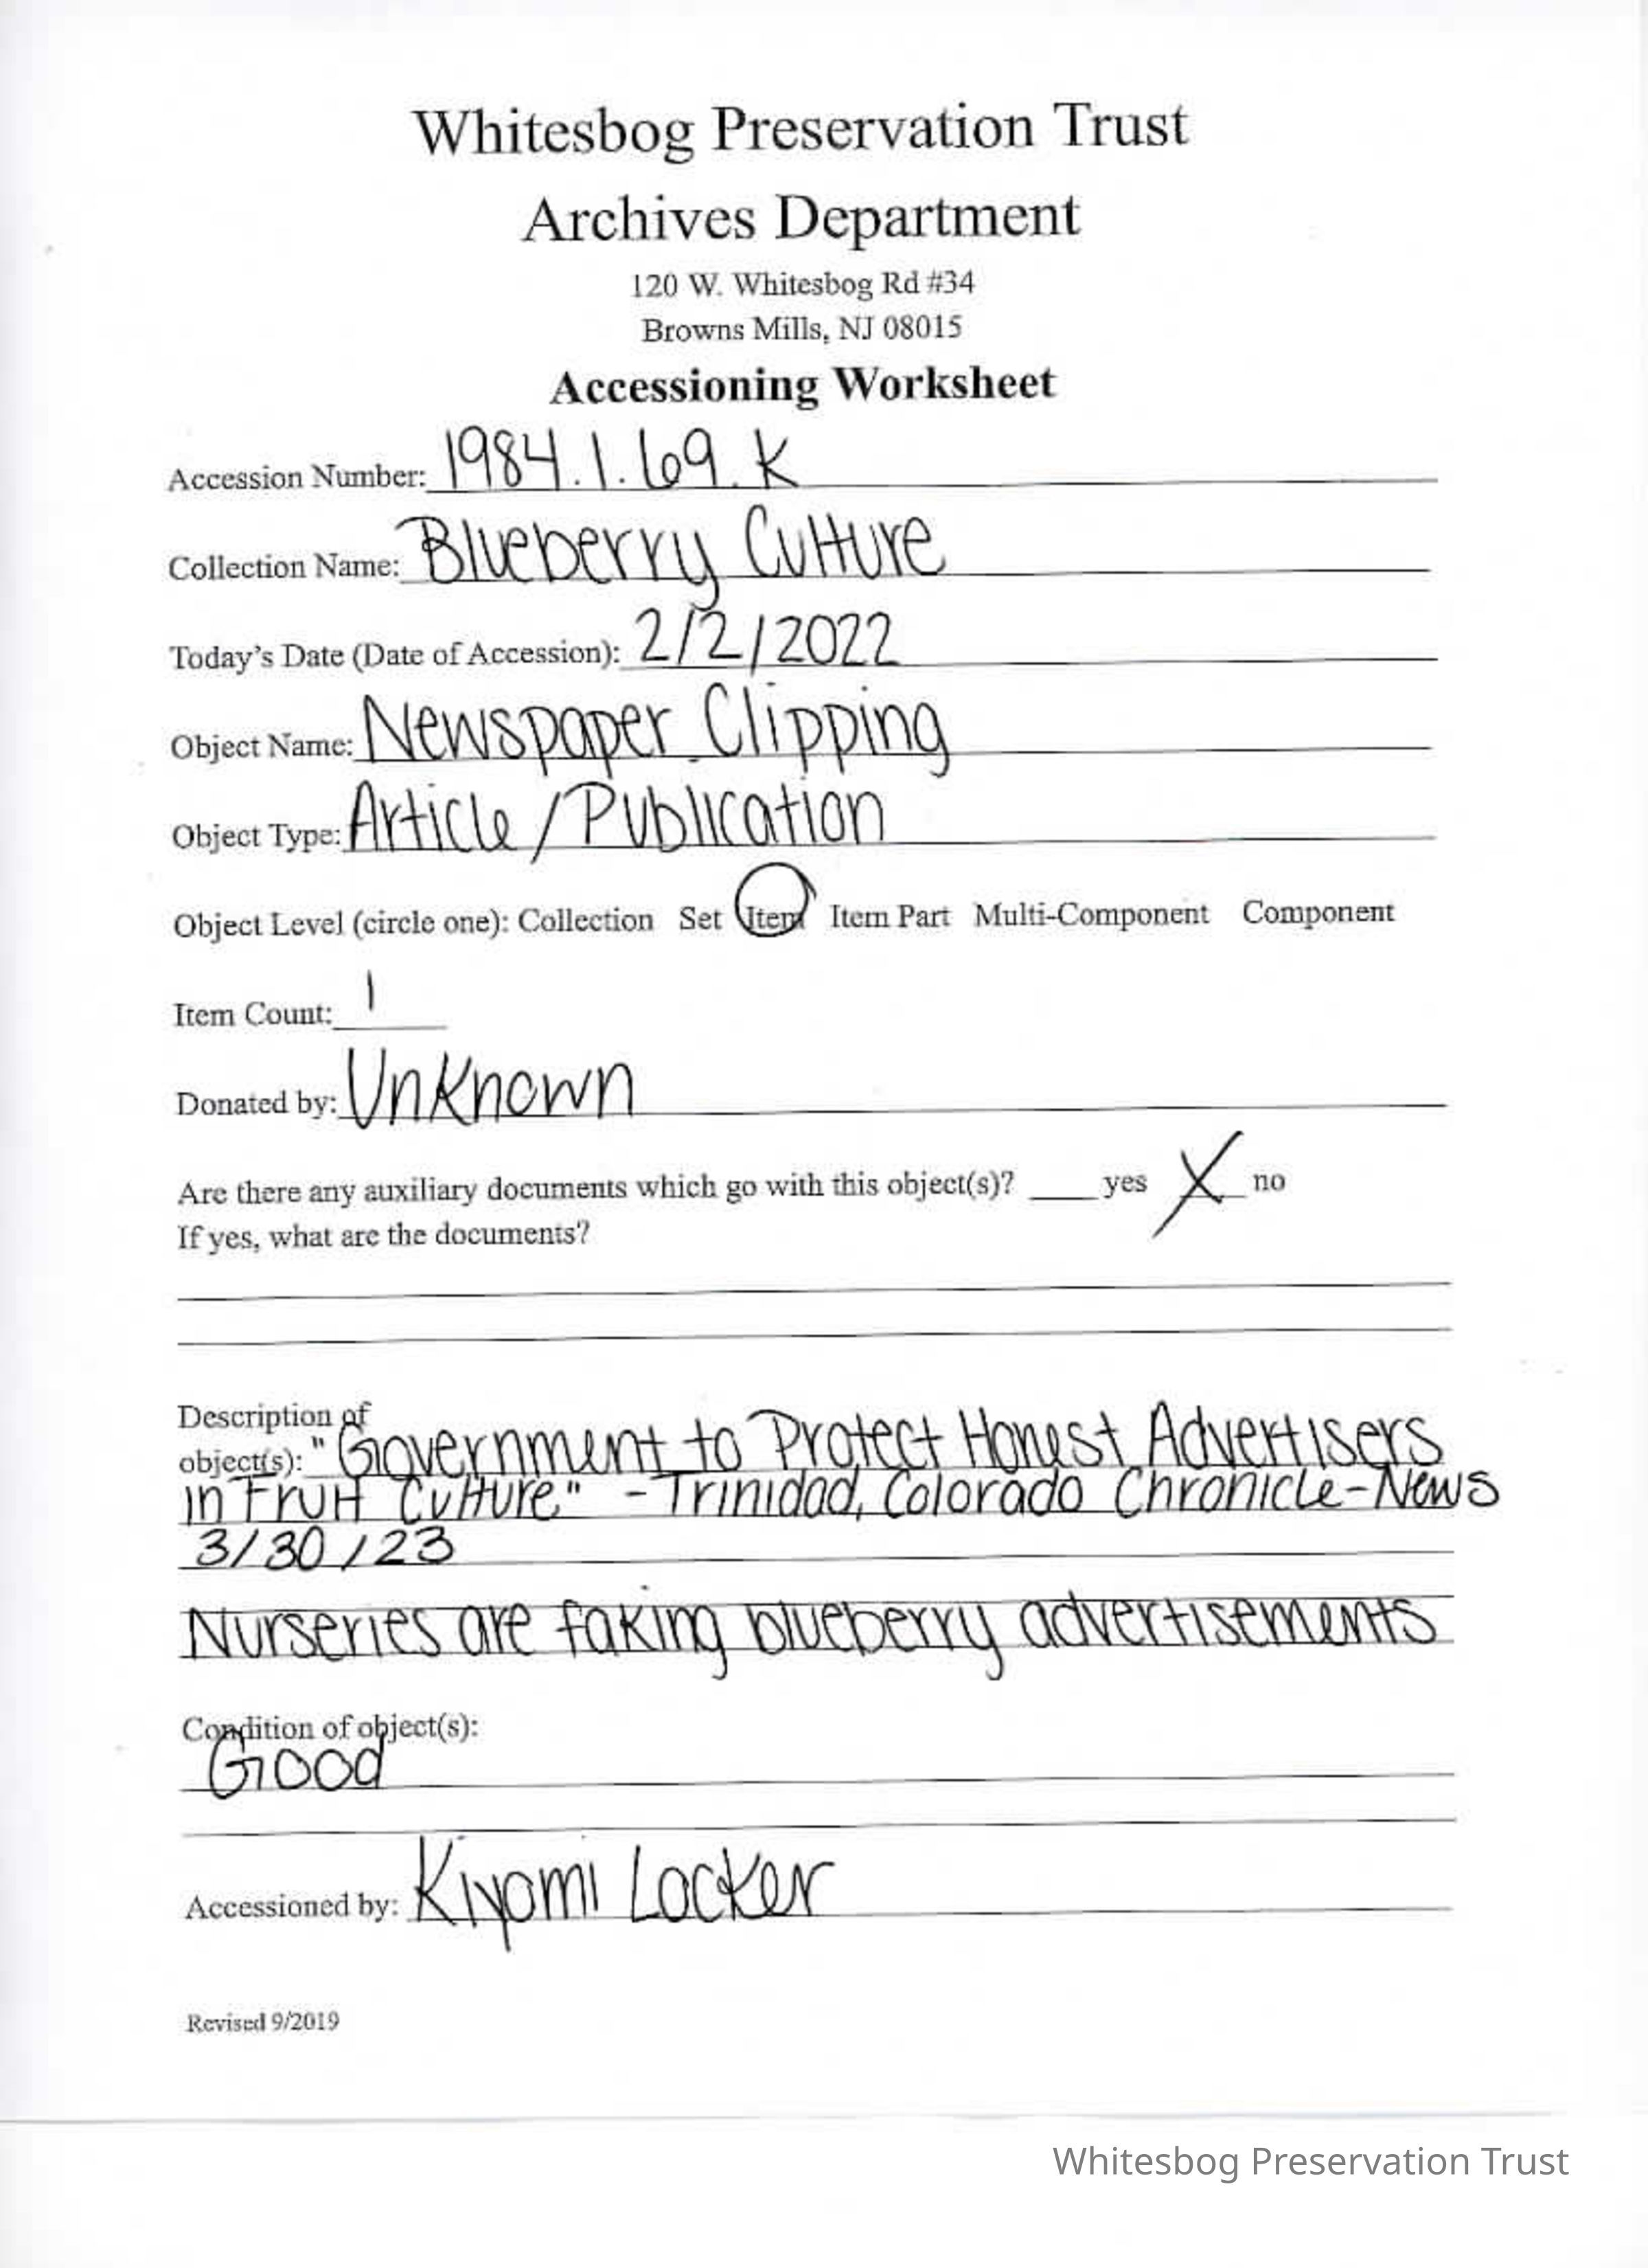 Whitesbog Preservation Trust
Archives Department
120 W. Whitesbog Rd #34
Browns Mills, NJ 08015
Accessioning Worksheet
Accession Number: 1984.1.69.K
Collection Name: Blueberry Culture
Today's Date (Date of Accession): 2/2/2022
Object Name: Newspaper Clipping
Object Type: Article/Publication
Object Level (circle one): Collection Set Item Item Part Multi-Component Component
Item Count: 1
Donated by: Unknown
Are there any auxiliary documents which go with this object(s)? ____ yes X no
If yes, what are the documents?
Description of
object(s): "Government to Protect Honest Advertisers
in Fruit Culture" - Trinidad, Colorado Chronicle-News
3/30/23
Nurseries are faking blueberry advertisements
Condition of object(s):
Good
Accessioned by: Kiyomi Locker
Revised 9/2019
Whitesbog Preservation Trust